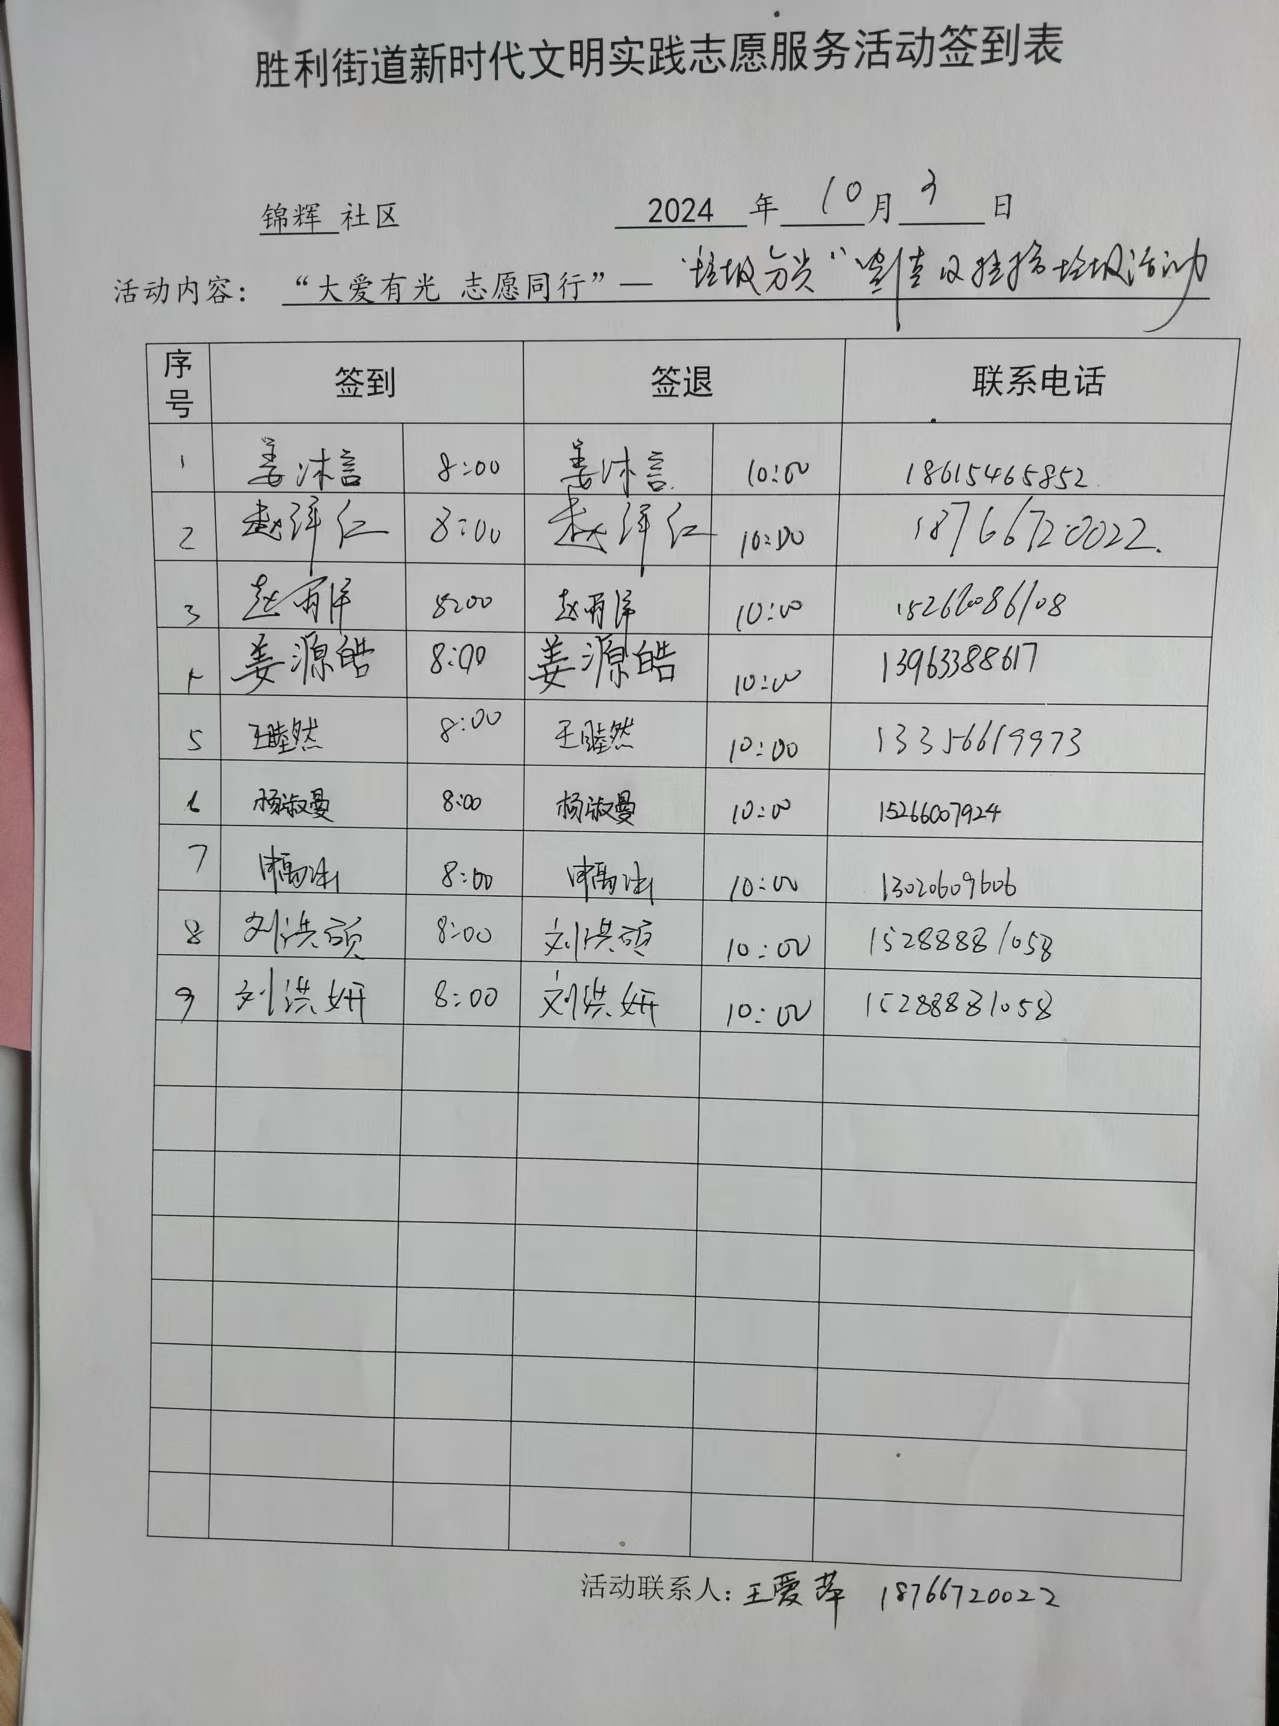 胜利街道新时代文明实践志愿服务活动签到表
锦辉 社区 2024 年 10 月 3 日
活动内容：“大爱有光 志愿同行”— “垃圾分类”宣传及捡拾垃圾活动
序号 签到 签退 联系电话
1 姜沐言 8:00 姜沐言 10:00 18615465852
2 赵洋仁 8:00 赵洋仁 10:00 18766720022.
3 赵雨洋 8:00 赵雨洋 10:00 15266086108
4 姜源皓 8:00 姜源皓 10:00 13963388617
5 王睦然 8:00 王睦然 10:00 13356619973
6 杨淑曼 8:00 杨淑曼 10:00 15266007924
7 8:00 10:00 13020609606
8 刘洪硕 8:00 刘洪硕 10:00 15288881058
9 刘洪妍 8:00 刘洪妍 10:00 15288881058
活动联系人：王爱萍 18766720022